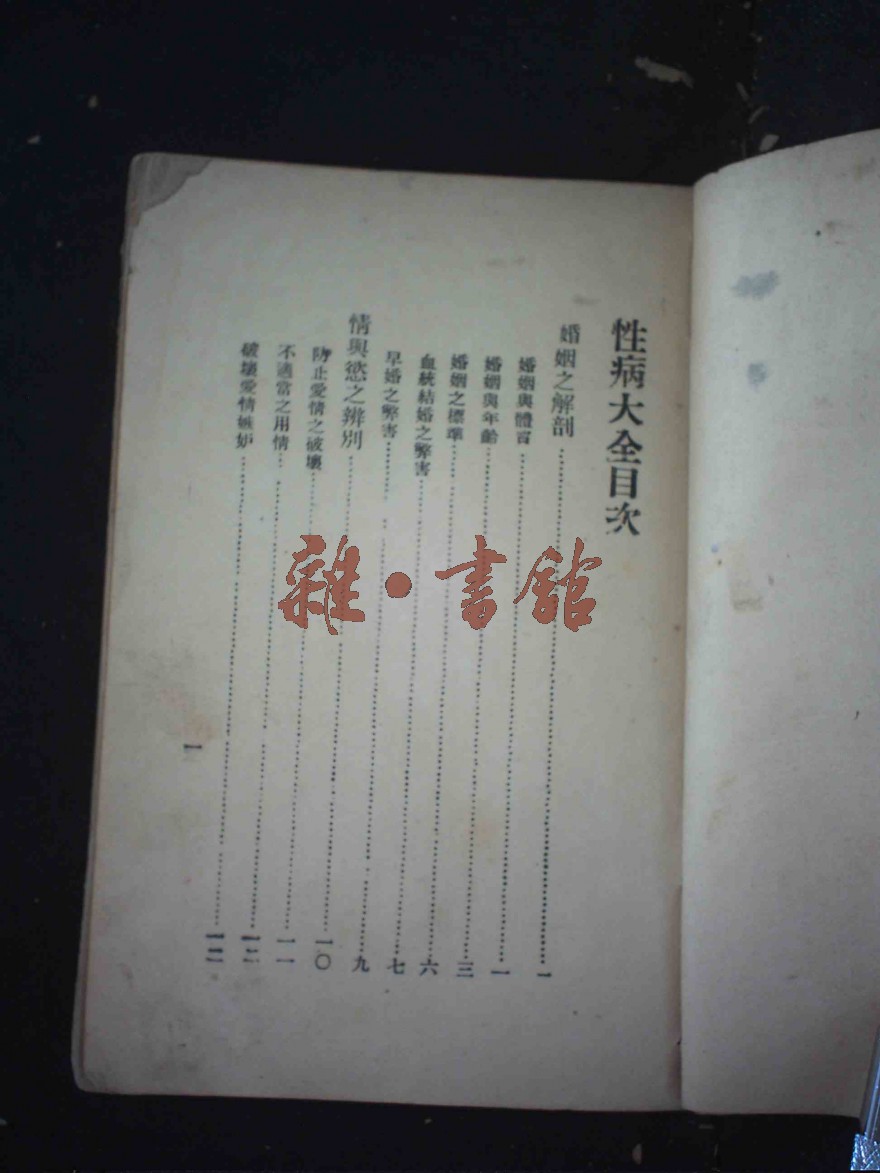 性病大全目次
婚姻之解剖……一
婚姻與體育……一
婚姻與年齡……三
婚姻之標準……六
血統結婚之弊害……七
早婚之弊害……九
情與慾之辨別……一〇
防止愛情之破壞……一一
不適當之用情……一二
破壞愛情嫉妒……一三
一
雜·書館